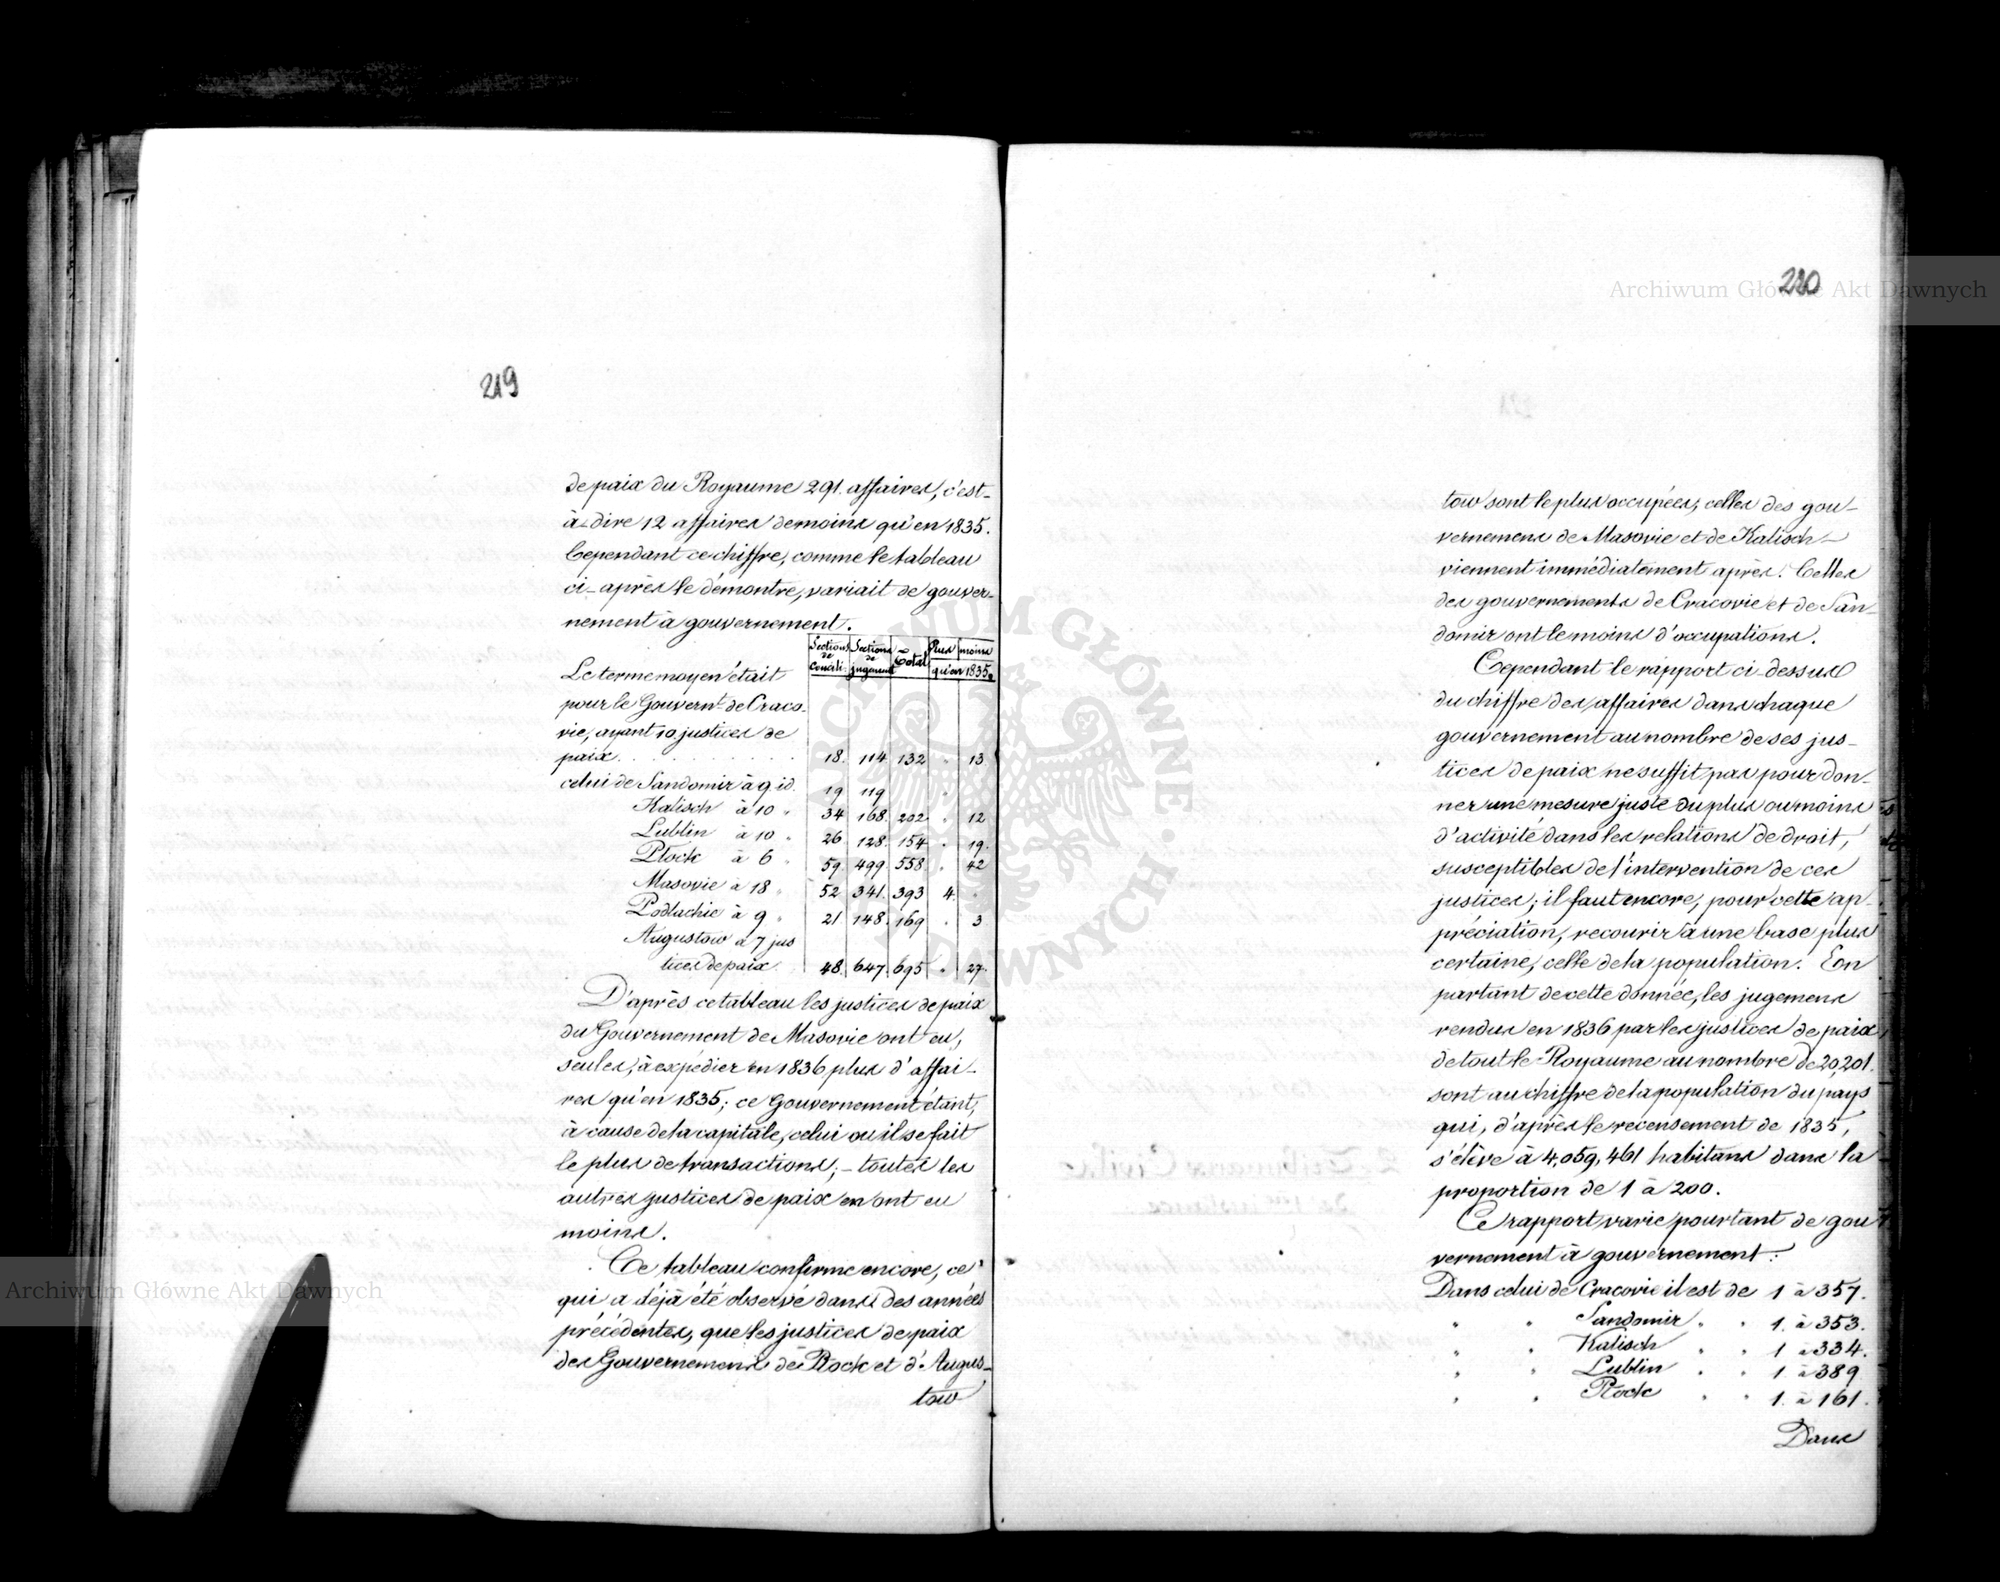 219
de paix du Royaume 291. affaires, c'est-
à-dire 12 affaires de moins qu'en 1835.
Cependant ce chiffre, comme le tableau
ci-après le démontre, variait de gouver-
nement à gouvernement.
Sections de Concili. Sections de jugement Total Plus moins qu'en 1835.
Le terme moyen était
pour le Gouvernt. de Craco-
vie, ayant 10 justices de
paix . . . . . . . . . 18. 114 132 " 13
celui de Sandomir à 9 id. 19 119 "
Kalisch à 10 " 34 168. 202 " 12
Lublin à 10 " 26 128. 154 " 19.
Płock à 6 " 59. 499. 558. " 42
Masovie à 18 " 52 341. 393 4. "
Podlachie à 9 " 21 148. 169 " 3
Augustow à 7 jus
tices de paix. 48. 647. 695 " 27.
D'après ce tableau les justices de paix
du Gouvernement de Masovie ont eu,
seules, à expédier en 1836 plus d'affai-
res qu'en 1835; ce Gouvernement étant,
à cause de la capitale, celui ou il se fait
le plus de transactions; - toutes les
autres justices de paix en ont eu
moins.
Ce tableau confirme encore, ce
qui a déjà été observé dans des années
précédentes, que les justices de paix
des Gouvernemens de Płock et d'Augus-
tow
220
tow sont le plus occupées; celles des gou-
vernemens de Masovie et de Kalisch -
viennent immédiatement après. Celles
des gouvernements de Cracovie et de San-
domir ont le moins d'occupations.
Cependant le rapport ci-dessus
du chiffre des affaires dans chaque
gouvernement au nombre de ses jus-
tices de paix ne suffit pas pour don-
ner une mesure juste du plus ou moins
d'activité dans les relations de droit,
susceptibles de l'intervention de ces
justices; il faut encore, pour cette ap-
préciation, recourir à une base plus
certaine, celle de la population. En
partant de cette donnée, les jugemens
rendus en 1836 par les justices de paix
de tout le Royaume au nombre de 20,201.
sont au chiffre de la population du pays
qui, d'après le recensement de 1835,
s'élève à 4,059,461 habitans dans la
proportion de 1 à 200.
Ce rapport varie pourtant de gou
vernement à gouvernement:
Dans celui de Cracovie il est de 1 à 357.
" " Sandomir " " 1. à 353.
" " Kalisch " " 1 à 334.
" " Lublin " " 1. à 389
" " Płock " " 1. à 161.
Dans
Archiwum Główne Akt Dawnych
Archiwum Główne Akt Dawnych
ARCHIWUM GŁÓWNE AKT DAWNYCH